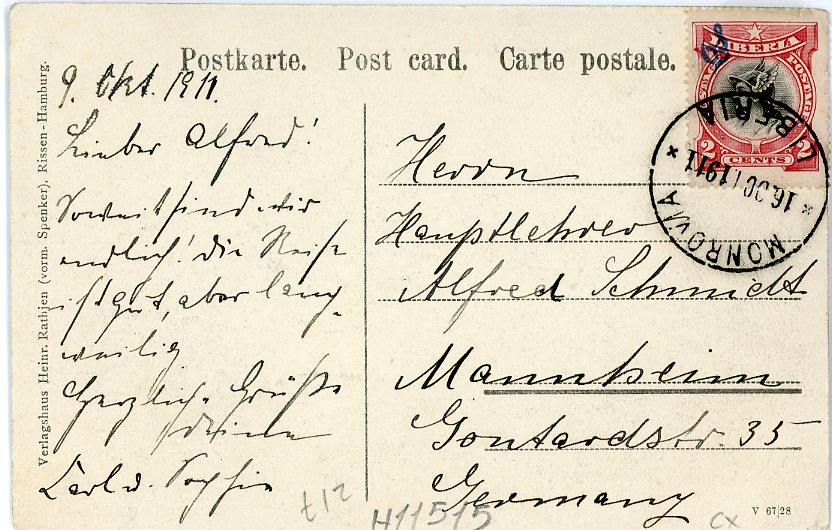 Postkarte. Post card. Carte postale.
9. Okt. 1911.
Lieber Alfred!
Soweit sind wir
endlich! die Reise
ist gut, aber lang-
weilig
Herzliche Grüße
deine
Karl u. Sophie
Herrn
Hauptlehrer
Alfred Schmidt
Mannheim
Gontardstr. 35
Germany
LIBERIA
POSTAGE POSTAGE
2 CENTS 2
MONROVIA * 16.OCT 1911 * LIBERIA
Verlagshaus Heinr. Rathjen (vorm. Spenker), Rissen-Hamburg.
t12
H11515
cx
V 67/28